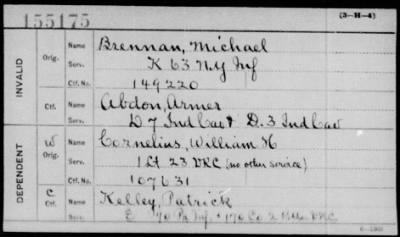 155175
(3-H-4)
INVALID
Orig.
Name Brennan, Michael
Serv. K 63 N.Y. Inf
Ctf. No. 149220
Ctf.
Name Abdon, Armer
Serv. D 7 Ind Cav & D. 3 Ind Cav
DEPENDENT
W
Orig.
Name Cornelius, William H
Serv. 1 Lt 23 VRC (no other service)
Ctf. No. 107631
C
Ctf.
Name Kelley, Patrick
Serv. E 70 Pa Inf. & 170 Co 2 Batt VRC